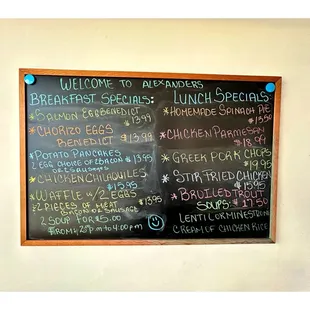 WELCOME TO ALEXANDERS
BREAKFAST SPECIALS:
*SALMON EGG BENEDICT
$13.99
*CHORIZO EGGS
BENEDICT $13.99
*POTATO PANCAKES
2 EGG CHOICE OF BACON $13.95
OR SAUSAGE
*CHICKEN CHILAQUILES
$15.95
*WAFFLE W/2 EGGS
2 PIECES OF MEAT $13.95
BACON OR SAUSAGE
2 SOUP FOR $5.00
FROM 2:00PM TO 4:00PM
LUNCH SPECIALS:
*HOMEMADE SPINACH PIE
$15.50
*CHICKEN PARMESAN
$18.99
*GREEK PORK CHOPS
$19.95
*STIR FRIED CHICKEN
$15.95
*BROILED TROUT
SOUPS: $17.50
LENTIL OR MINESTRONE
CREAM OF CHICKEN RICE